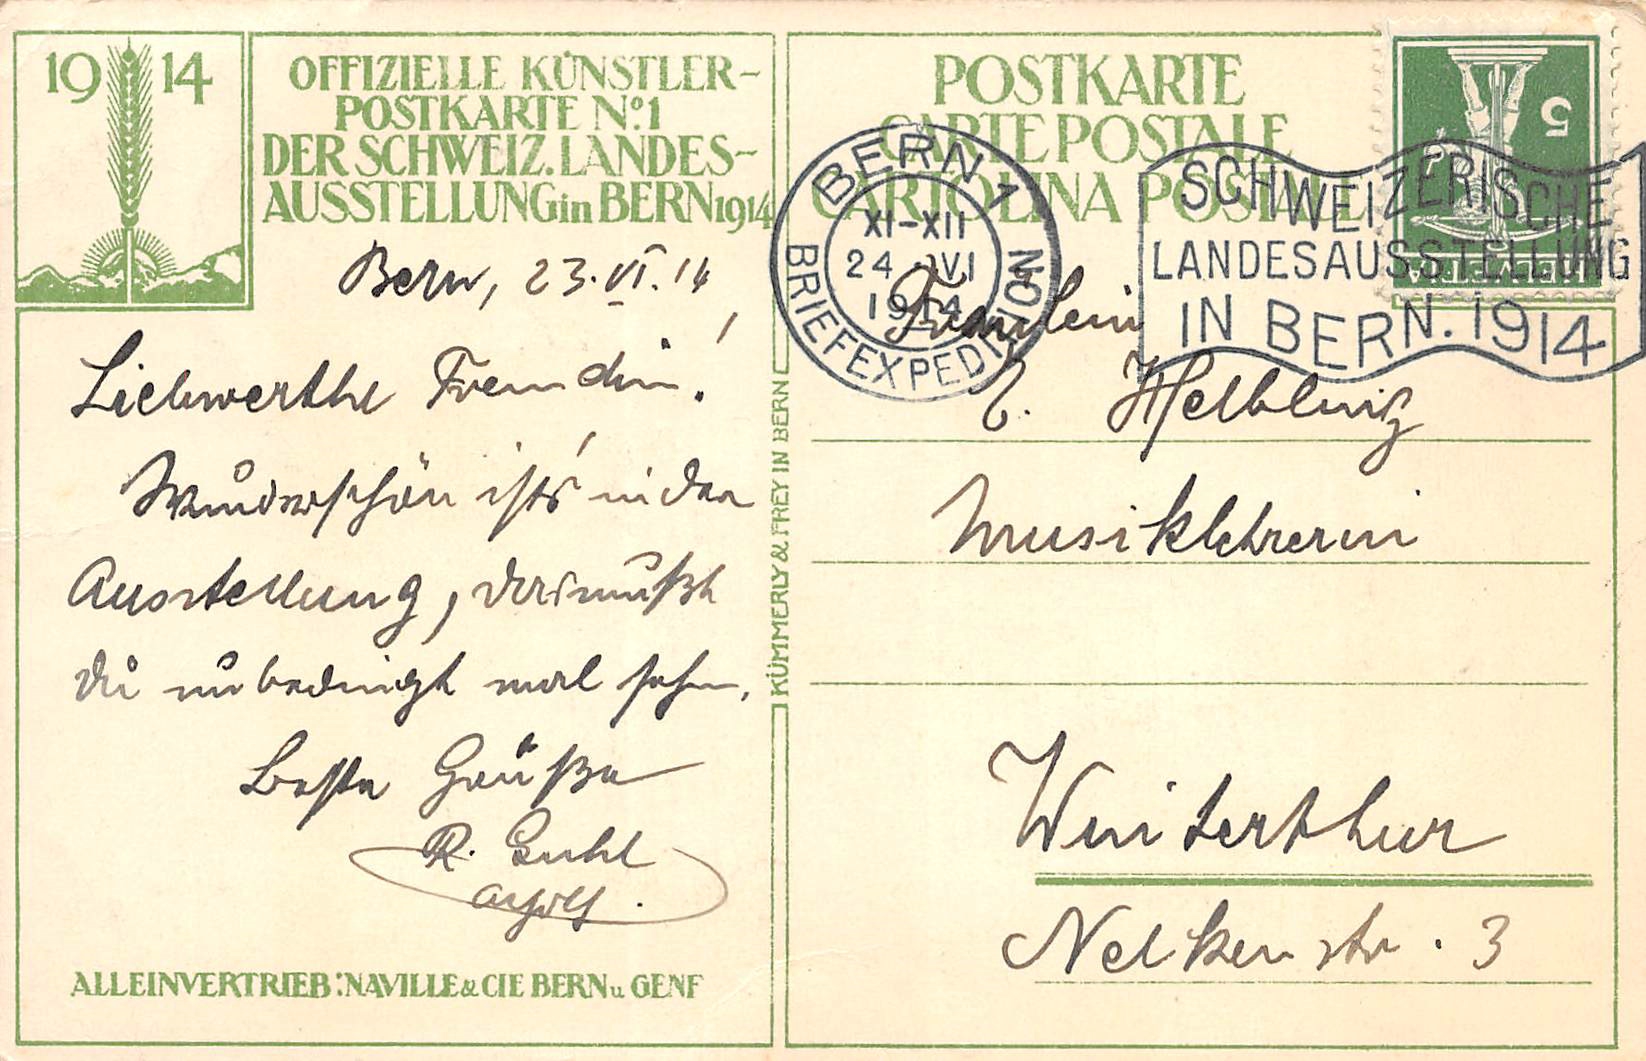 1914
OFFIZIELLE KÜNSTLER-
POSTKARTE No. 1
DER SCHWEIZ. LANDES-
AUSSTELLUNG in BERN 1914
Bern, 23. VI. 14
Liebwerthe Freundin!
Wunderschön ist's in der
Ausstellung, das mußt
du unbedingt mal sehn.
Beste Grüße
R. Guhl
ALLEINVERTRIEB: NAVILLE & CIE BERN u GENF
KÜMMERLY & FREY IN BERN
POSTKARTE
CARTE POSTALE
CARTOLINA POSTALE
5
HELVETIA
BERN 1
XI-XII
24 VI
1914
BRIEFEXPEDITION
SCHWEIZERISCHE
LANDESAUSSTELLUNG
IN BERN. 1914
Fräulein
Helbling
Musiklehrerin
Winterthur
Nelkenstr. 3